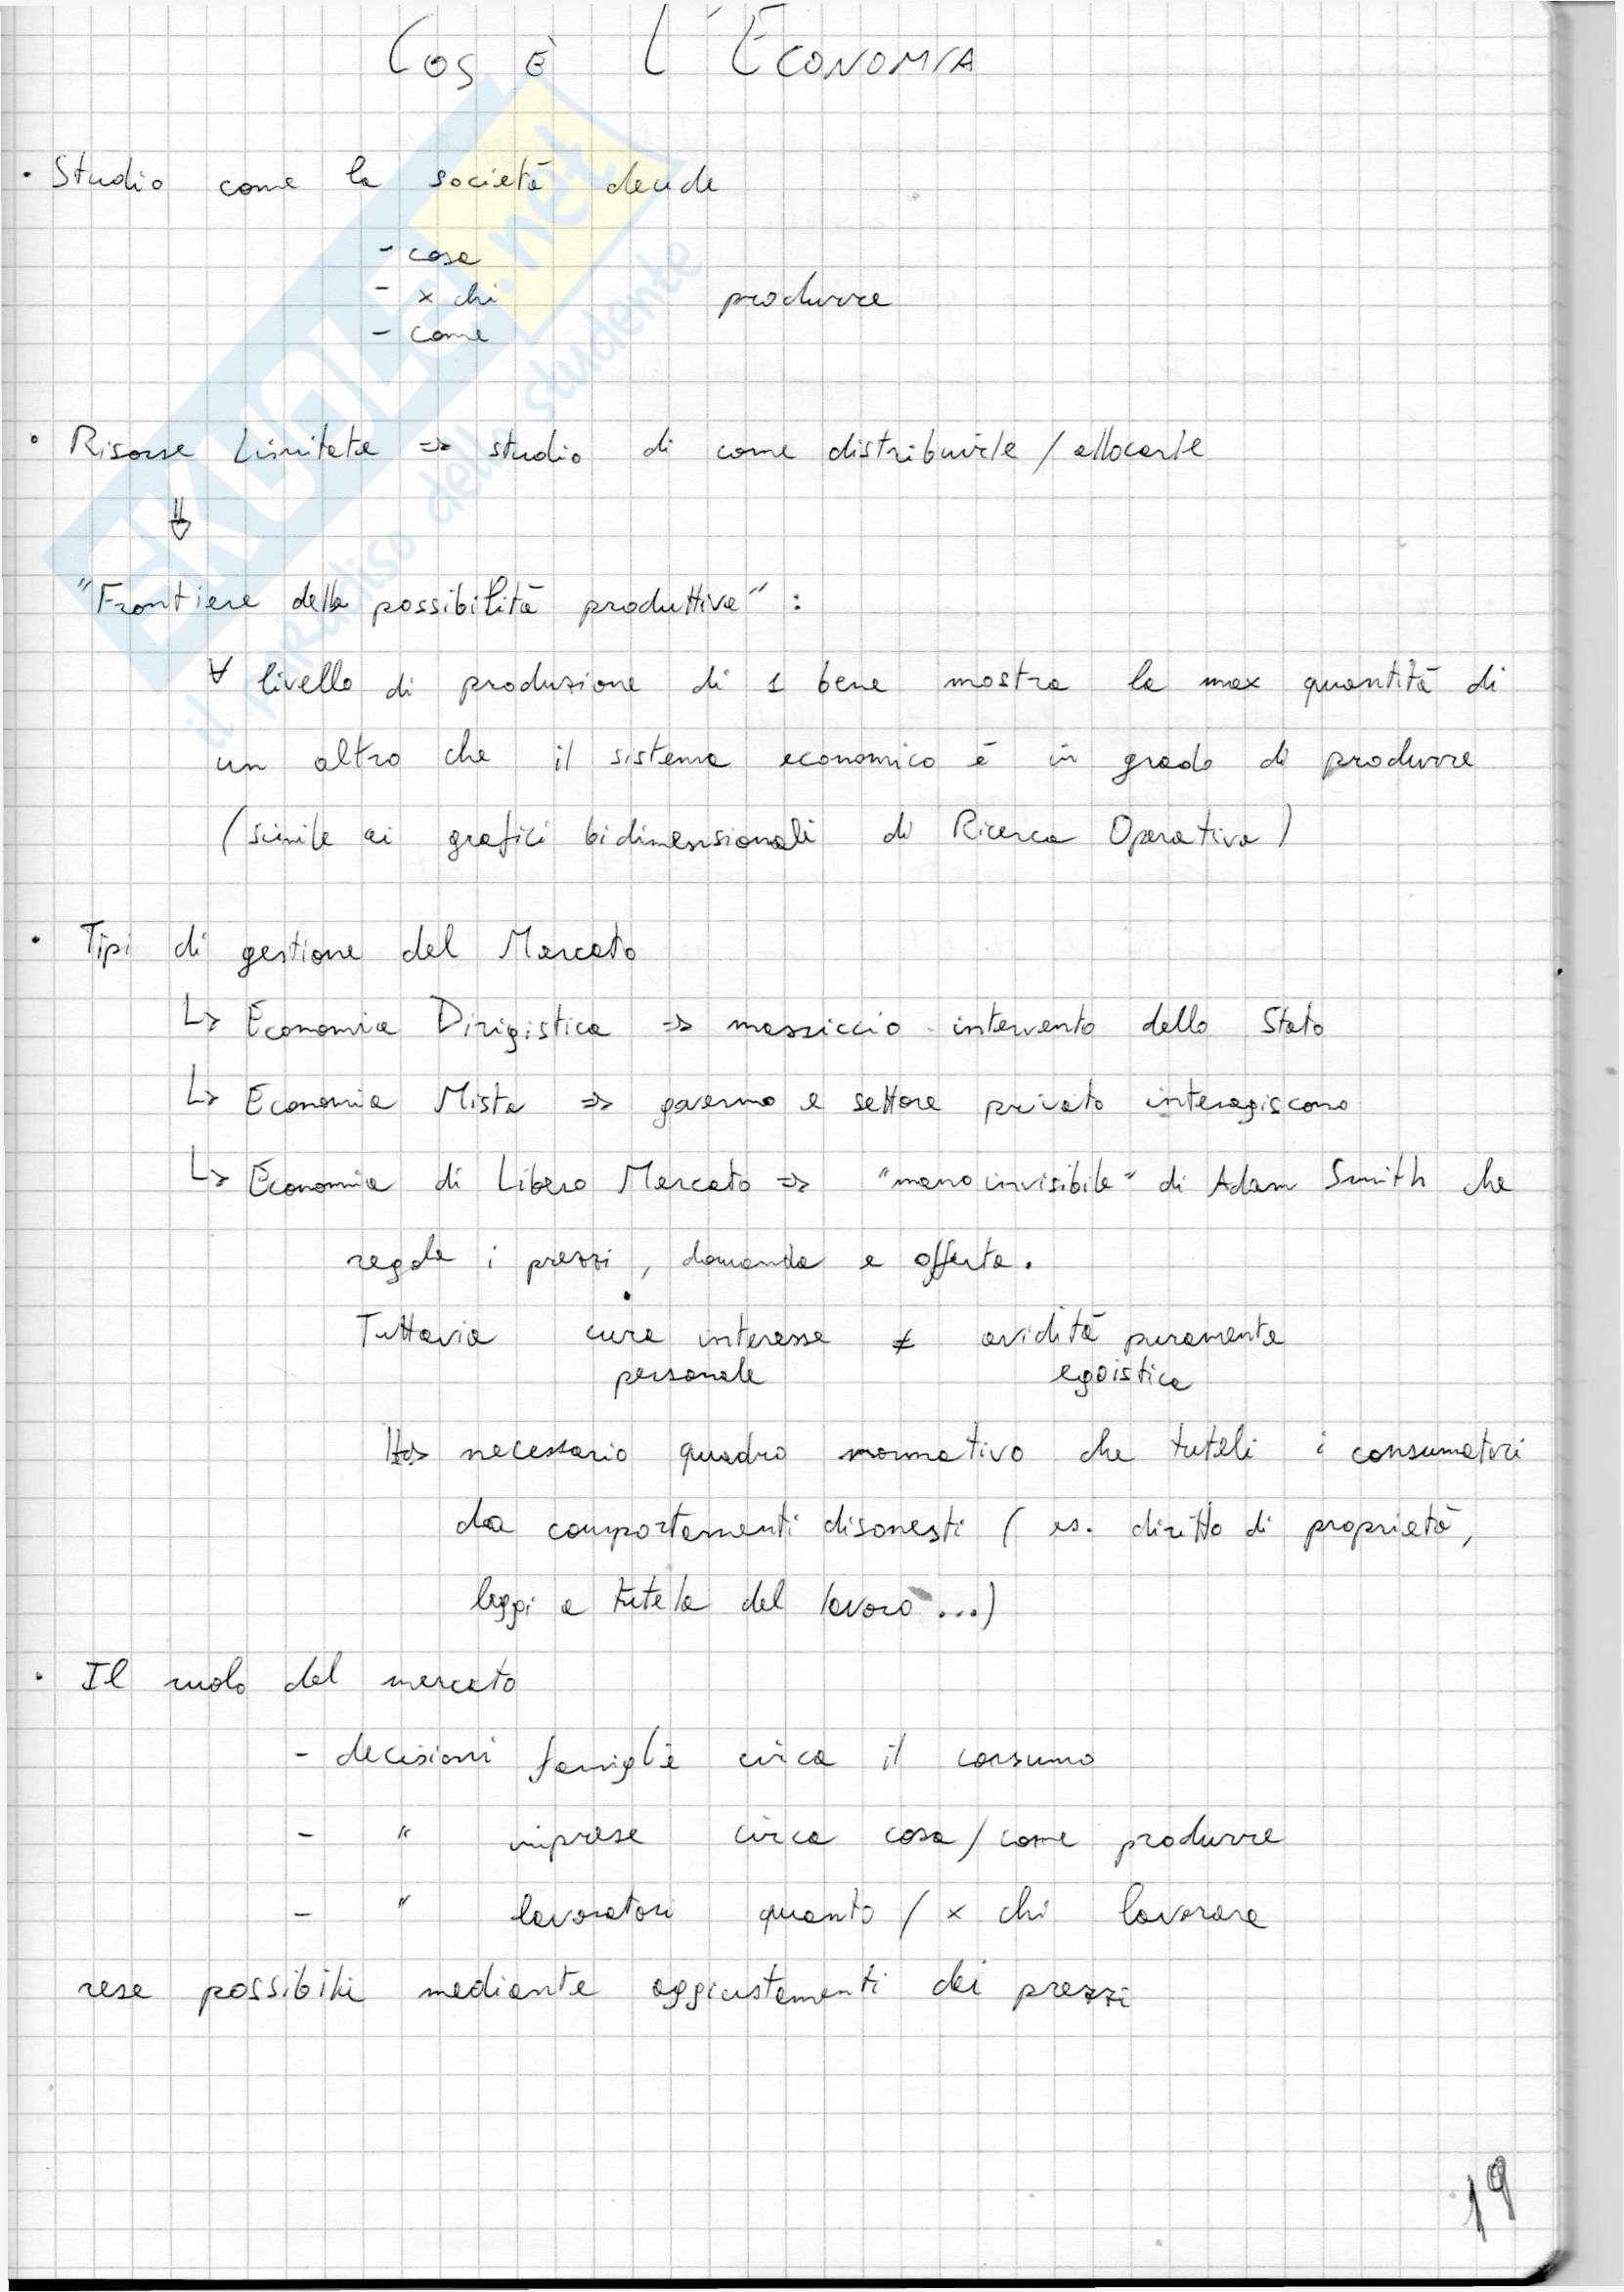 COS È L'ECONOMIA
• Studio come la società decide
- cosa
- x chi produrre
- come
• Risorse Limitate => studio di come distribuirle / allocarle
⇓
"Frontiera della possibilità produttiva" :
∀ livello di produzione di 1 bene mostra la max quantità di
un altro che il sistema economico è in grado di produrre
(simile ai grafici bidimensionali di Ricerca Operativa)
• Tipi di gestione del Mercato
↳ Economia Dirigistica => massiccio intervento dello Stato
↳ Economia Mista => governo e settore privato interagiscono
↳ Economia di Libero Mercato => "mano invisibile" di Adam Smith che
regola i prezzi, domanda e offerta.
Tuttavia cura interesse ≠ avidità puramente
personale egoistica
↳> necessario quadro normativo che tuteli i consumatori
da comportamenti disonesti ( es. diritto di proprietà,
leggi a tutela del lavoro ...)
• Il ruolo del mercato
- decisioni famiglie circa il consumo
- " imprese circa cosa / come produrre
- " lavoratori quanto / x chi lavorare
rese possibili mediante aggiustamenti dei prezzi
19
.net
il paradiso dello studente